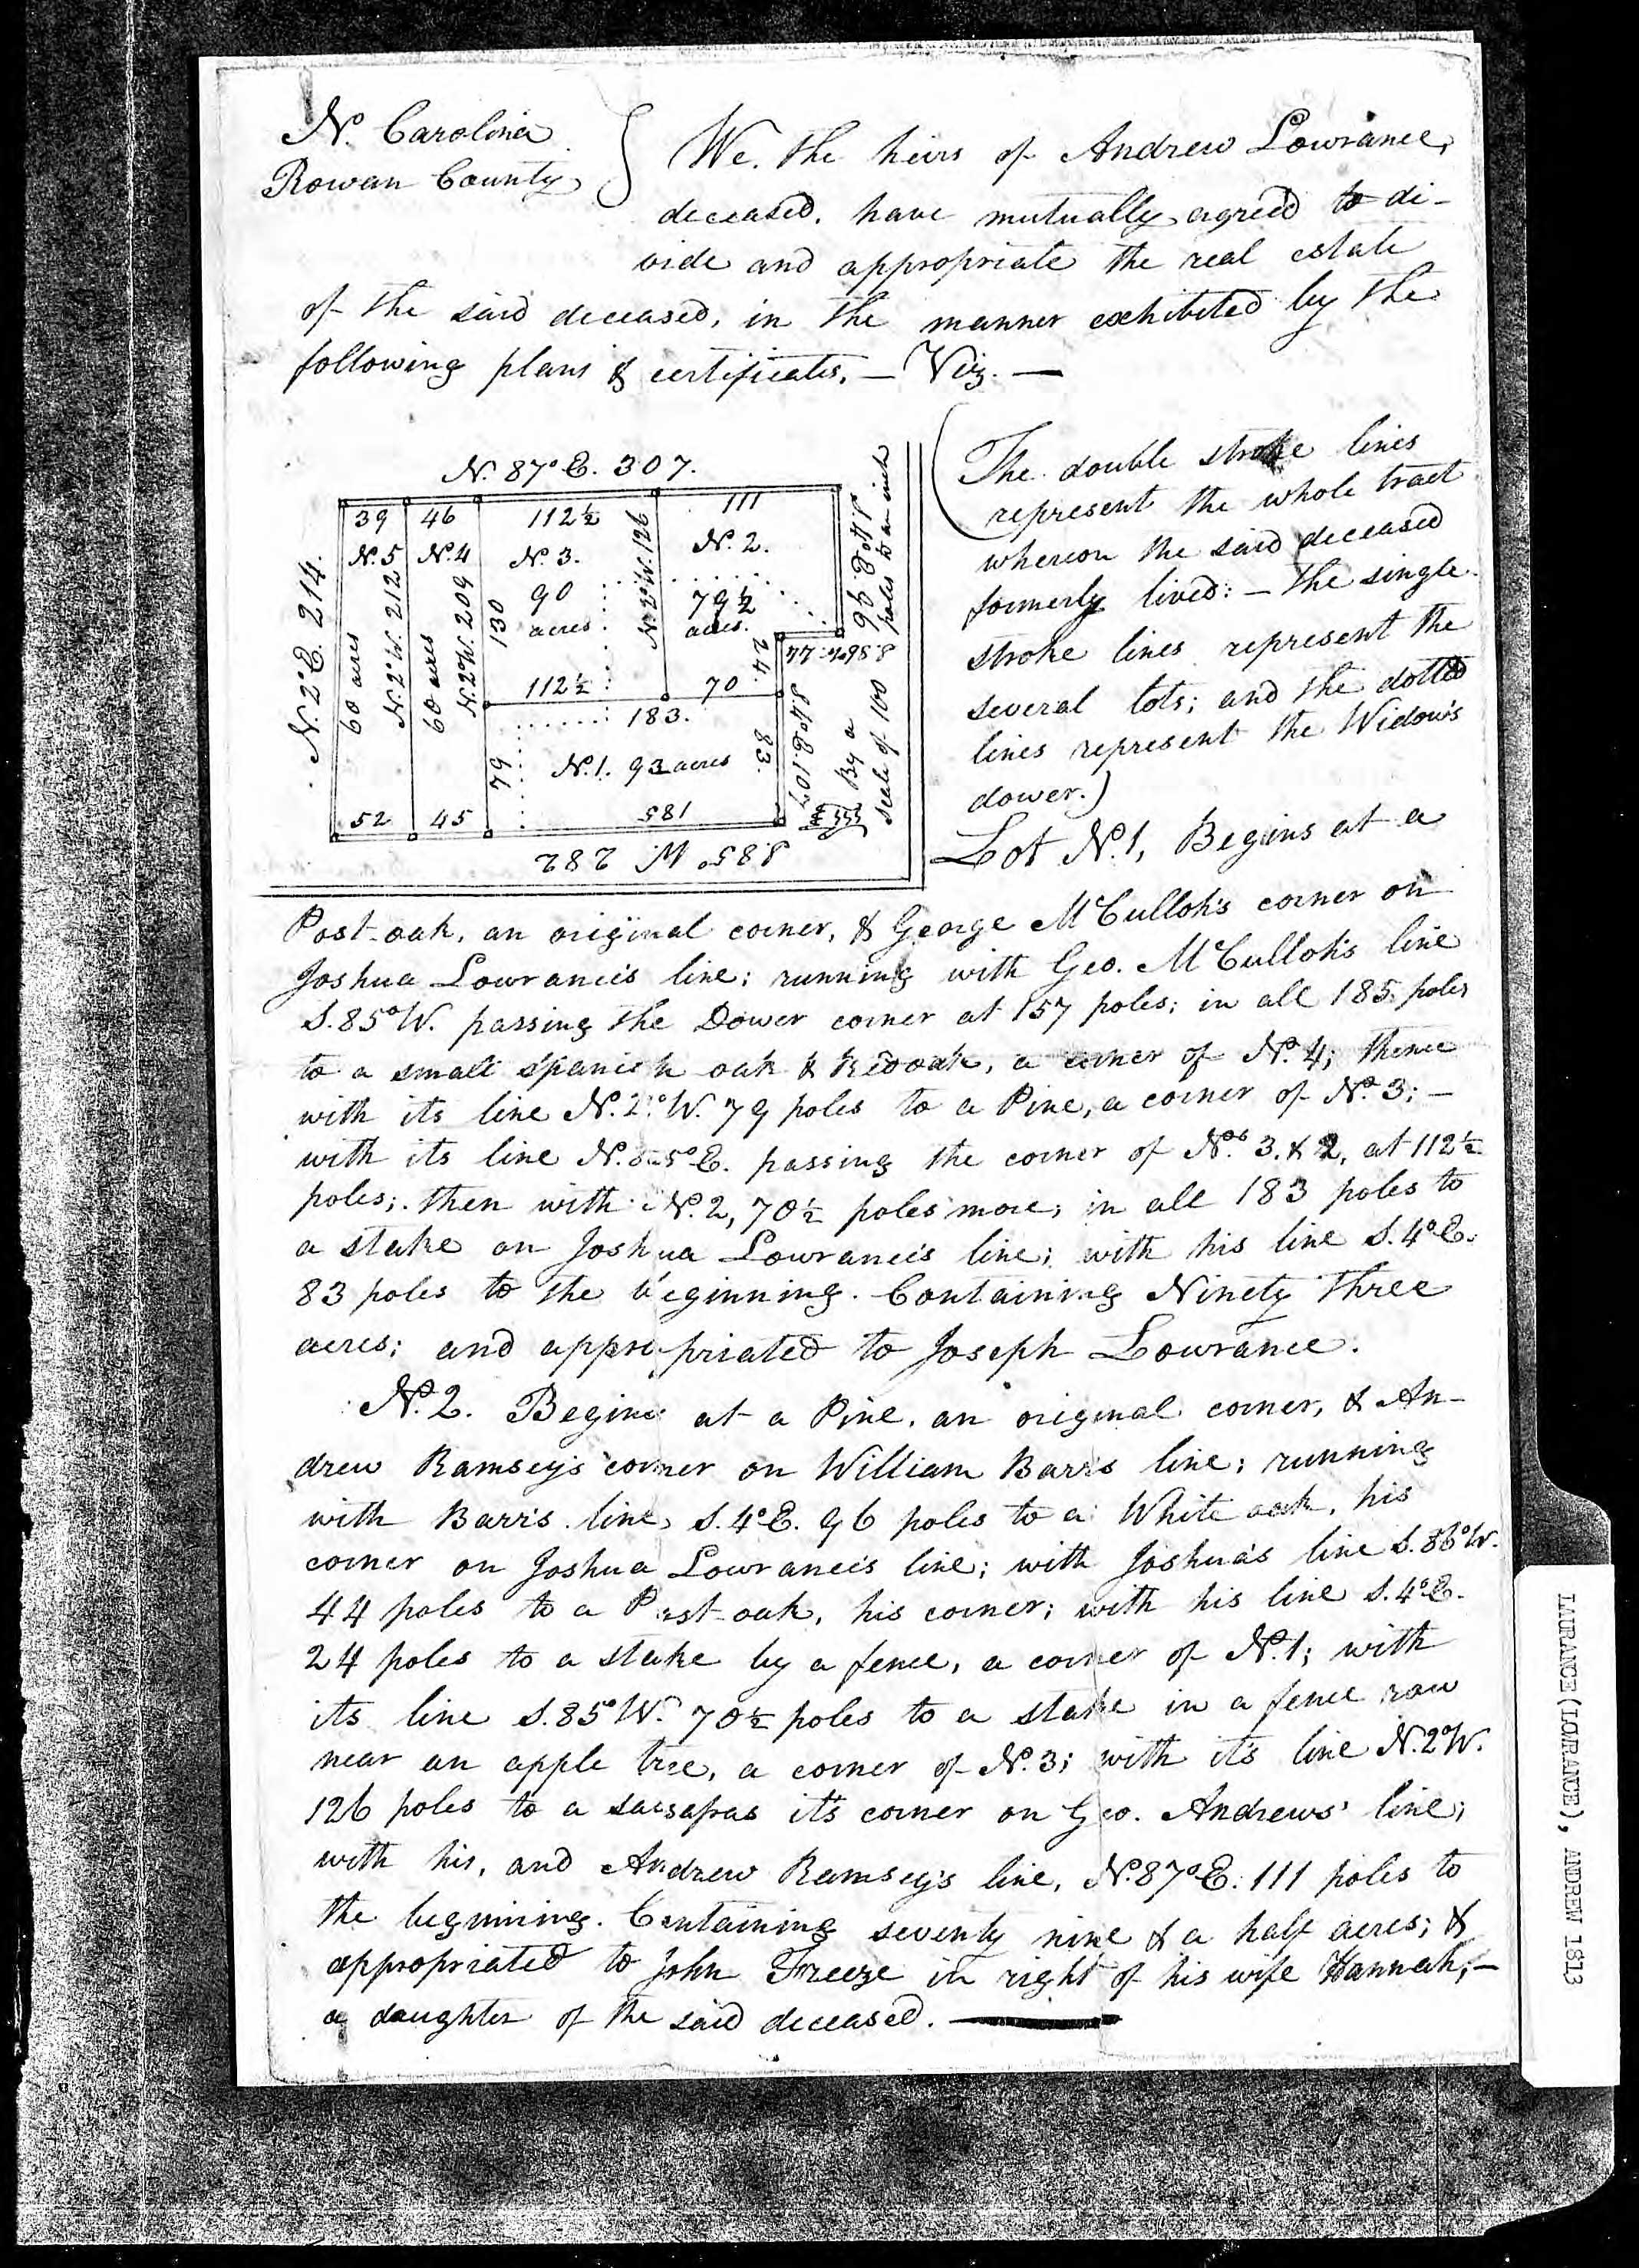 No. Carolina
Rowan County
We, the heirs of Andrew Lowrance,
deceased, have mutually agreed to di-
vide and appropriate the real estate
of the said deceased, in the manner exhibited by the
following plans & certificates, — Viz. —
N. 87° E. 307.
39 46 112½ 111
No. 5 No. 4 No. 3. No. 2.
90 acres.
79½ acres.
N. 2° E. 214.
60 acres
N. 2° W. 212
60 acres
N. 2° W. 209
130
N. 2° W. 126
S. 4° E. 96
24
44
112½ 70
183.
79
No. 1. 93 acres
83.
S. 4° E. 107
52 45 185
S. 85° W 282
By a
scale of 100
poles to an inch
(The double stroke lines
represent the whole tract
whereon the said deceased
formerly lived: — the single
stroke lines represent the
several lots; and the dotted
lines represent the Widow's
dower.)
Lot No. 1, Begins at a
Post-oak, an original corner, & George McCulloh's corner on
Joshua Lowrance's line; running with Geo. McCulloh's line
S. 85° W. passing the Dower corner at 157 poles; in all 185 poles
to a small Spanish oak & Red oak, a corner of No. 4; thence
with its line N. 2° W. 79 poles to a Pine, a corner of No. 3; —
with its line N. 85° E. passing the corner of Nos. 3. & 2, at 112½
poles; then with No. 2, 70½ poles more; in all 183 poles to
a stake on Joshua Lowrance's line; with his line S. 4° E.
83 poles to the beginning. Containing Ninety three
acres; and appropriated to Joseph Lowrance.
No. 2. Begins at a Pine, an original corner, & An-
drew Ramsey's corner on William Barr's line; running
with Barr's line, S. 4° E. 96 poles to a White oak, his
corner on Joshua Lowrance's line; with Joshua's line S. 86° W.
44 poles to a Post-oak, his corner; with his line S. 4° E.
24 poles to a stake by a fence, a corner of No. 1; with
its line S. 85° W. 70½ poles to a stake in a fence row
near an apple tree, a corner of No. 3; with its line N. 2° W.
126 poles to a sassafras its corner on Geo. Andrews' line;
with his, and Andrew Ramsey's line, N. 87° E. 111 poles to
the beginning. Containing seventy nine & a half acres; &
appropriated to John Freeze in right of his wife Hannah, —
a daughter of the said deceased.
LAURANCE(LOWRANCE), ANDREW 1813